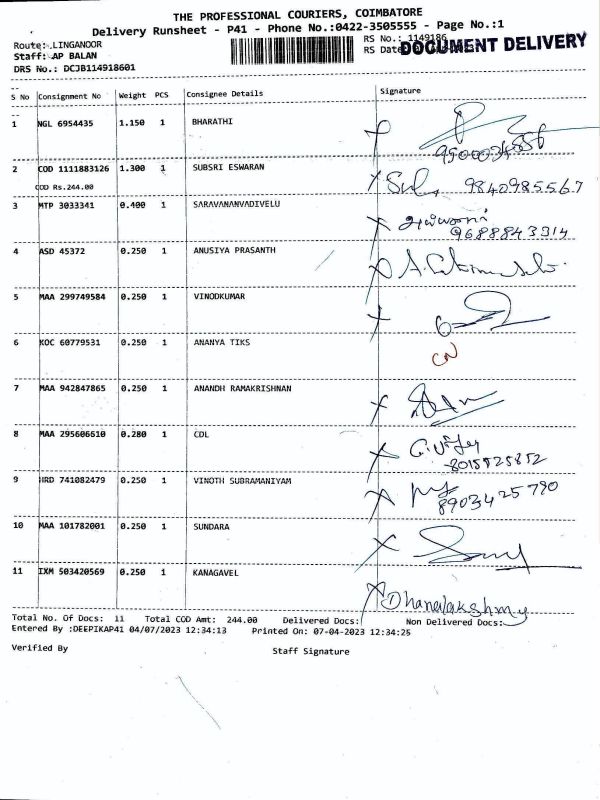 THE PROFESSIONAL COURIERS, COIMBATORE
Delivery Runsheet - P41 - Phone No.:0422-3505555 - Page No.:1
Route:.LINGANOOR RS No.: 1149186
Staff: AP BALAN RS Date DOCUMENT DELIVERY
DRS No.: DCJB114918601
S No Consignment No Weight PCS Consignee Details Signature
1 NGL 6954435 1.150 1 BHARATHI
2 COD 1111883126 1.300 1 SUBSRI ESWARAN 9840985567
COD Rs.244.00
3 MTP 3033341 0.400 1 SARAVANANVADIVELU
9688843314
4 ASD 45372 0.250 1 ANUSIYA PRASANTH
5 MAA 299749584 0.250 1 VINODKUMAR
6 KOC 60779531 0.250 1 ANANYA TIKS
CN
7 MAA 942847865 0.250 1 ANANDH RAMAKRISHNAN
8 MAA 295606610 0.280 1 CDL
8015525852
9 HRD 741082479 0.250 1 VINOTH SUBRAMANIYAM
8903425790
10 MAA 101782001 0.250 1 SUNDARA
11 IXM 503420569 0.250 1 KANAGAVEL
Dhanalakshmy
Total No. Of Docs: 11 Total COD Amt: 244.00 Delivered Docs: Non Delivered Docs:
Entered By :DEEPIKAP41 04/07/2023 12:34:13 Printed On: 07-04-2023 12:34:25
Verified By Staff Signature